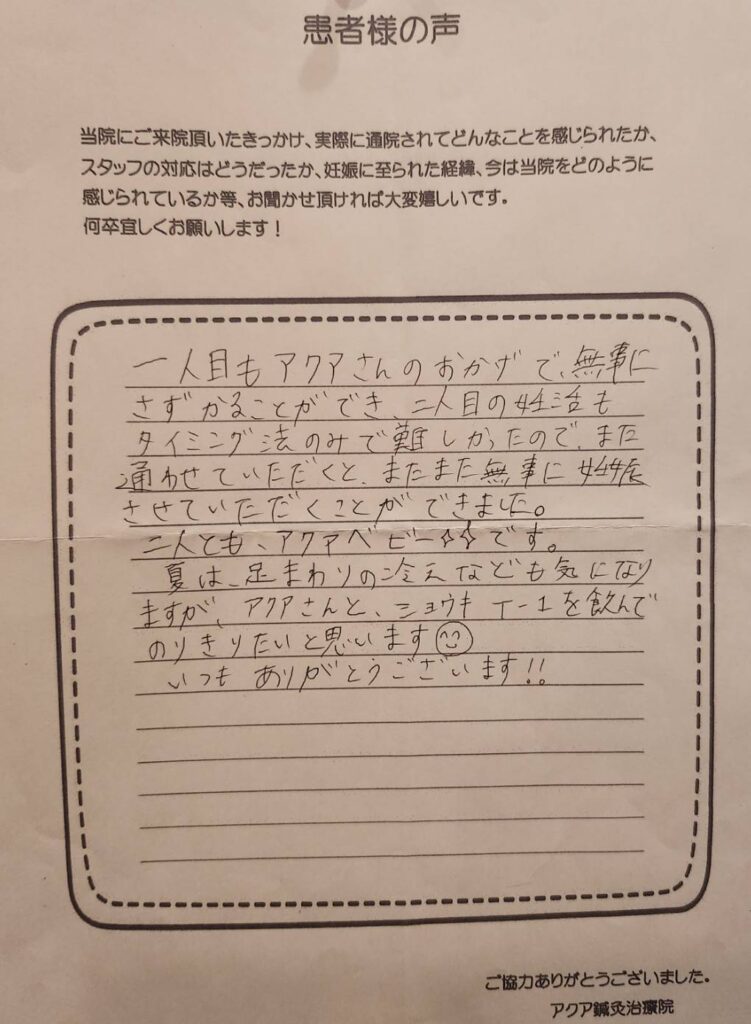 患者様の声
当院にご来院頂いたきっかけ、実際に通院されてどんなことを感じられたか、
スタッフの対応はどうだったか、妊娠に至られた経緯、今は当院をどのように
感じられているか等、お聞かせ頂ければ大変嬉しいです。
何卒宜しくお願いします！
一人目もアクアさんのおかげで、無事に
さずかることができ、二人目の妊活も
タイミング法のみで難しかったので、また
通わせていただくと、またまた無事に妊娠
させていただくことができました。
二人とも、アクアベビー☆☆です。
夏は、足まわりの冷えなども気になり
ますが、アクアさんと、ショウキT-1を飲んで
のりきりたいと思います😊
いつもありがとうございます!!
ご協力ありがとうございました。
アクア鍼灸治療院